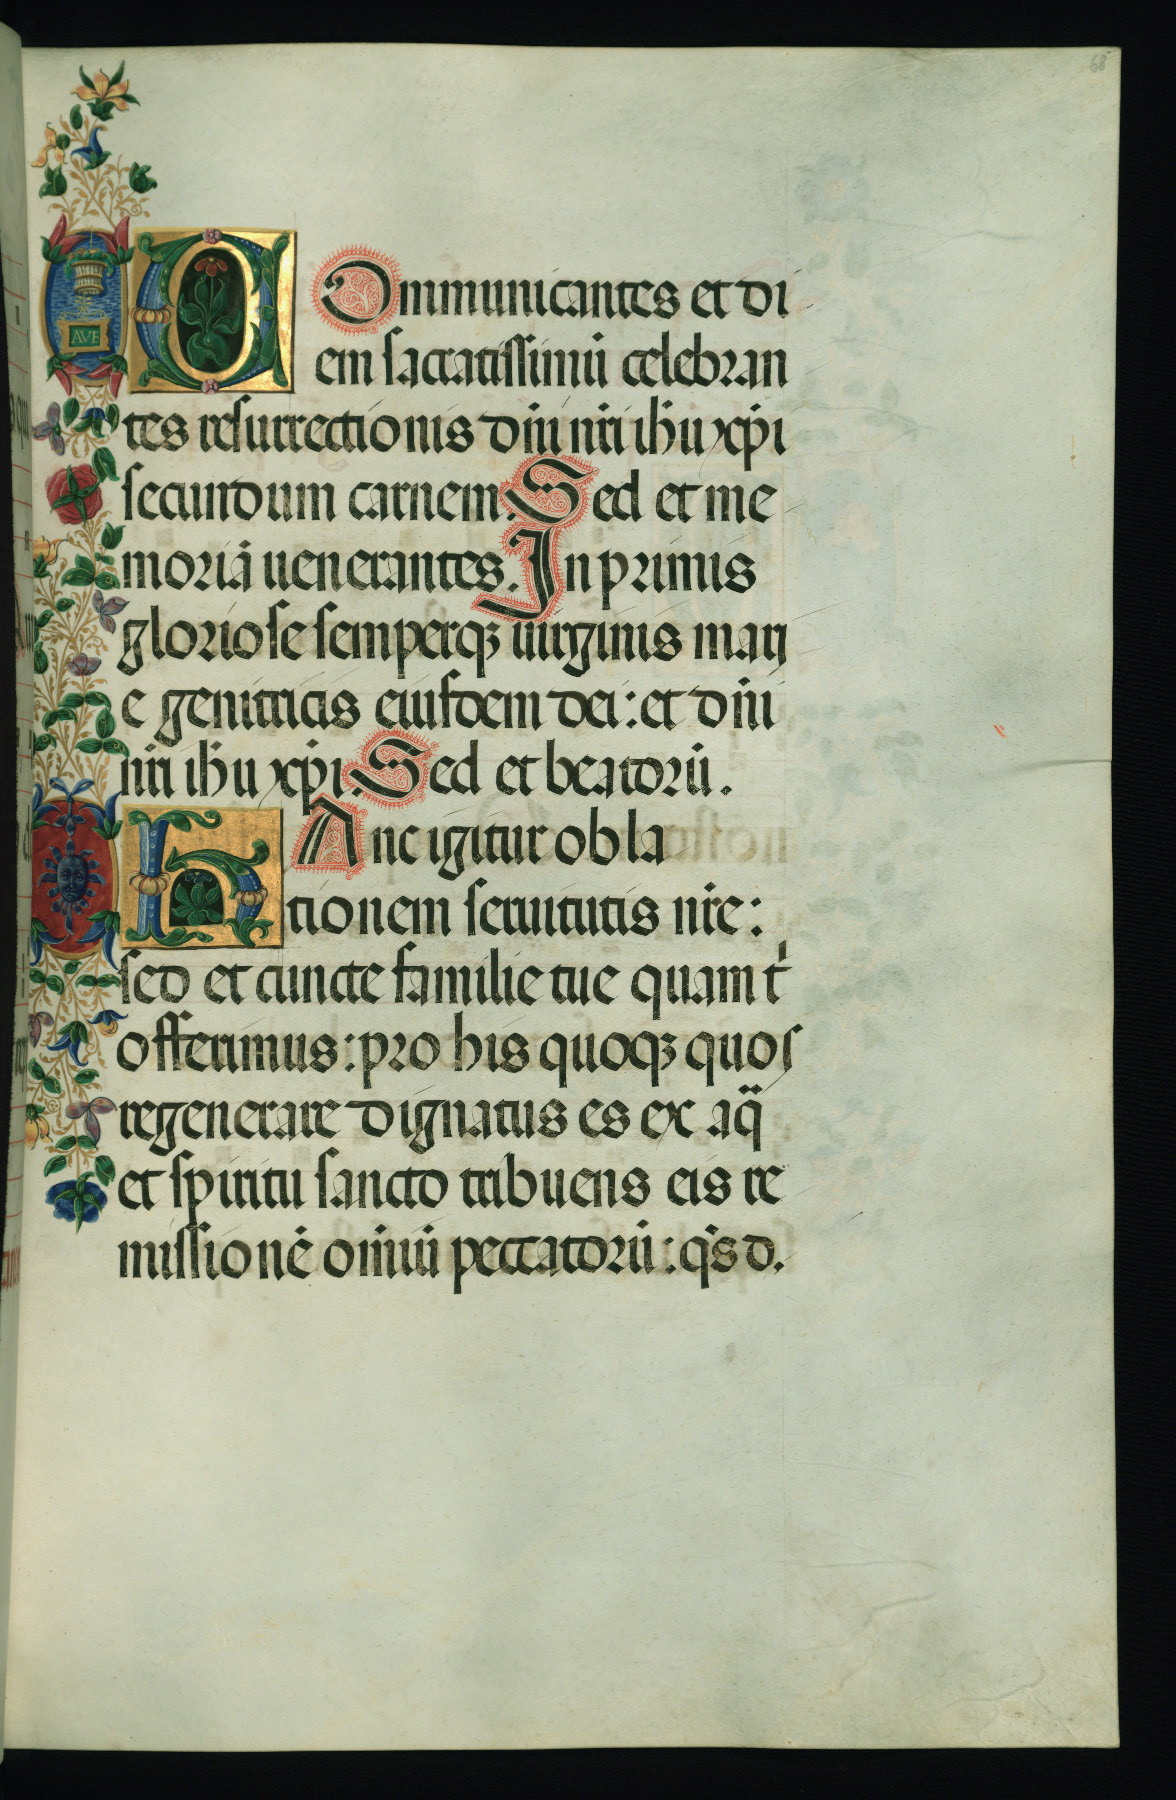 68
AVE
COmmunicantes et di
em sacratissimū celebran
tes resurrectionis dn̄i nr̄i ih̄u xp̄i
secundum carnem. Sed et me
moriā uenerantes. In primis
gloriose semperqꝫ uirginis mari
e genitricis eiusdem dei: et dn̄i
nr̄i ih̄u xp̄i. Sed et beatorū.
HAnc igitur obla
tionem seruitutis nr̄e:
sed et cuncte familie tue quam t
offerimus: pro his quoqꝫ quos
regenerare dignatus es ex aq̄
et spiritu sancto tribuens eis re
missionē om̄iū peccatorū: qs d.